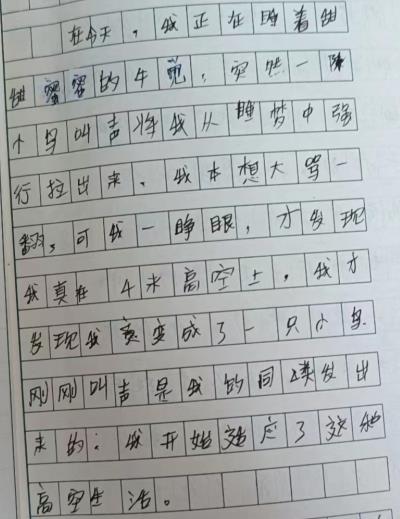 在今天，我正在睡着甜
甜蜜蜜的午觉，突然一阵
小鸟叫声将我从睡梦中强
行拉出来，我本想大骂一
翻，可我一睁眼，才发现
我真在4米高空上，我才
发现我竟变成了一只小鸟
刚刚叫声是我的同类发出
来的；我开始适应了这种
高空生活。